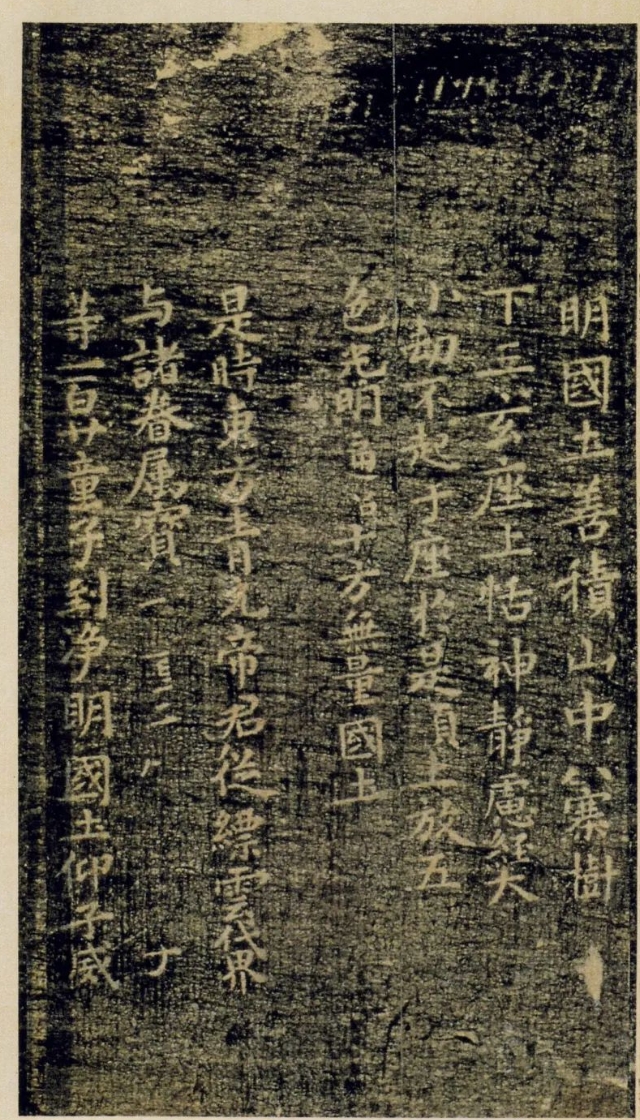 明國土善積山中騫樹
下玉京座上恬神靜慮經大
小劫不起于座於是頂上放五
色光明 十方無量國土
是時東方青元帝君從縹雲世界
与諸眷属寶
等一百廿童子到淨明國土仰子威